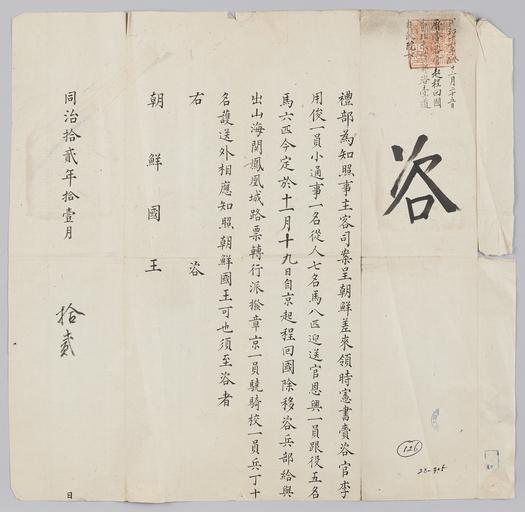 咨
禮部為知照事主客司案呈朝鮮差來領時憲書賫咨官李
用俊一員小通事一名從人七名馬八匹迎送官恩興一員跟役五名
馬六匹今定於十一月十九日自京起程回國除移咨兵部給與
出山海關鳳凰城路票轉行派撥章京一員驍騎校一員兵丁十
名護送外相應知照朝鮮國王可也須至咨者
右 咨
朝鮮國王
同治拾貳年拾壹月
拾貳
日
126